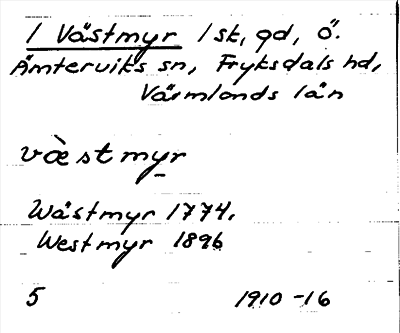 1 Västmyr 1 sk, gd, Ö.
Ämterviks sn, Fryksdals hd,
Värmlands län
væ̀stmyr
Wästmyr 1774,
Westmyr 1896
5 1910-16